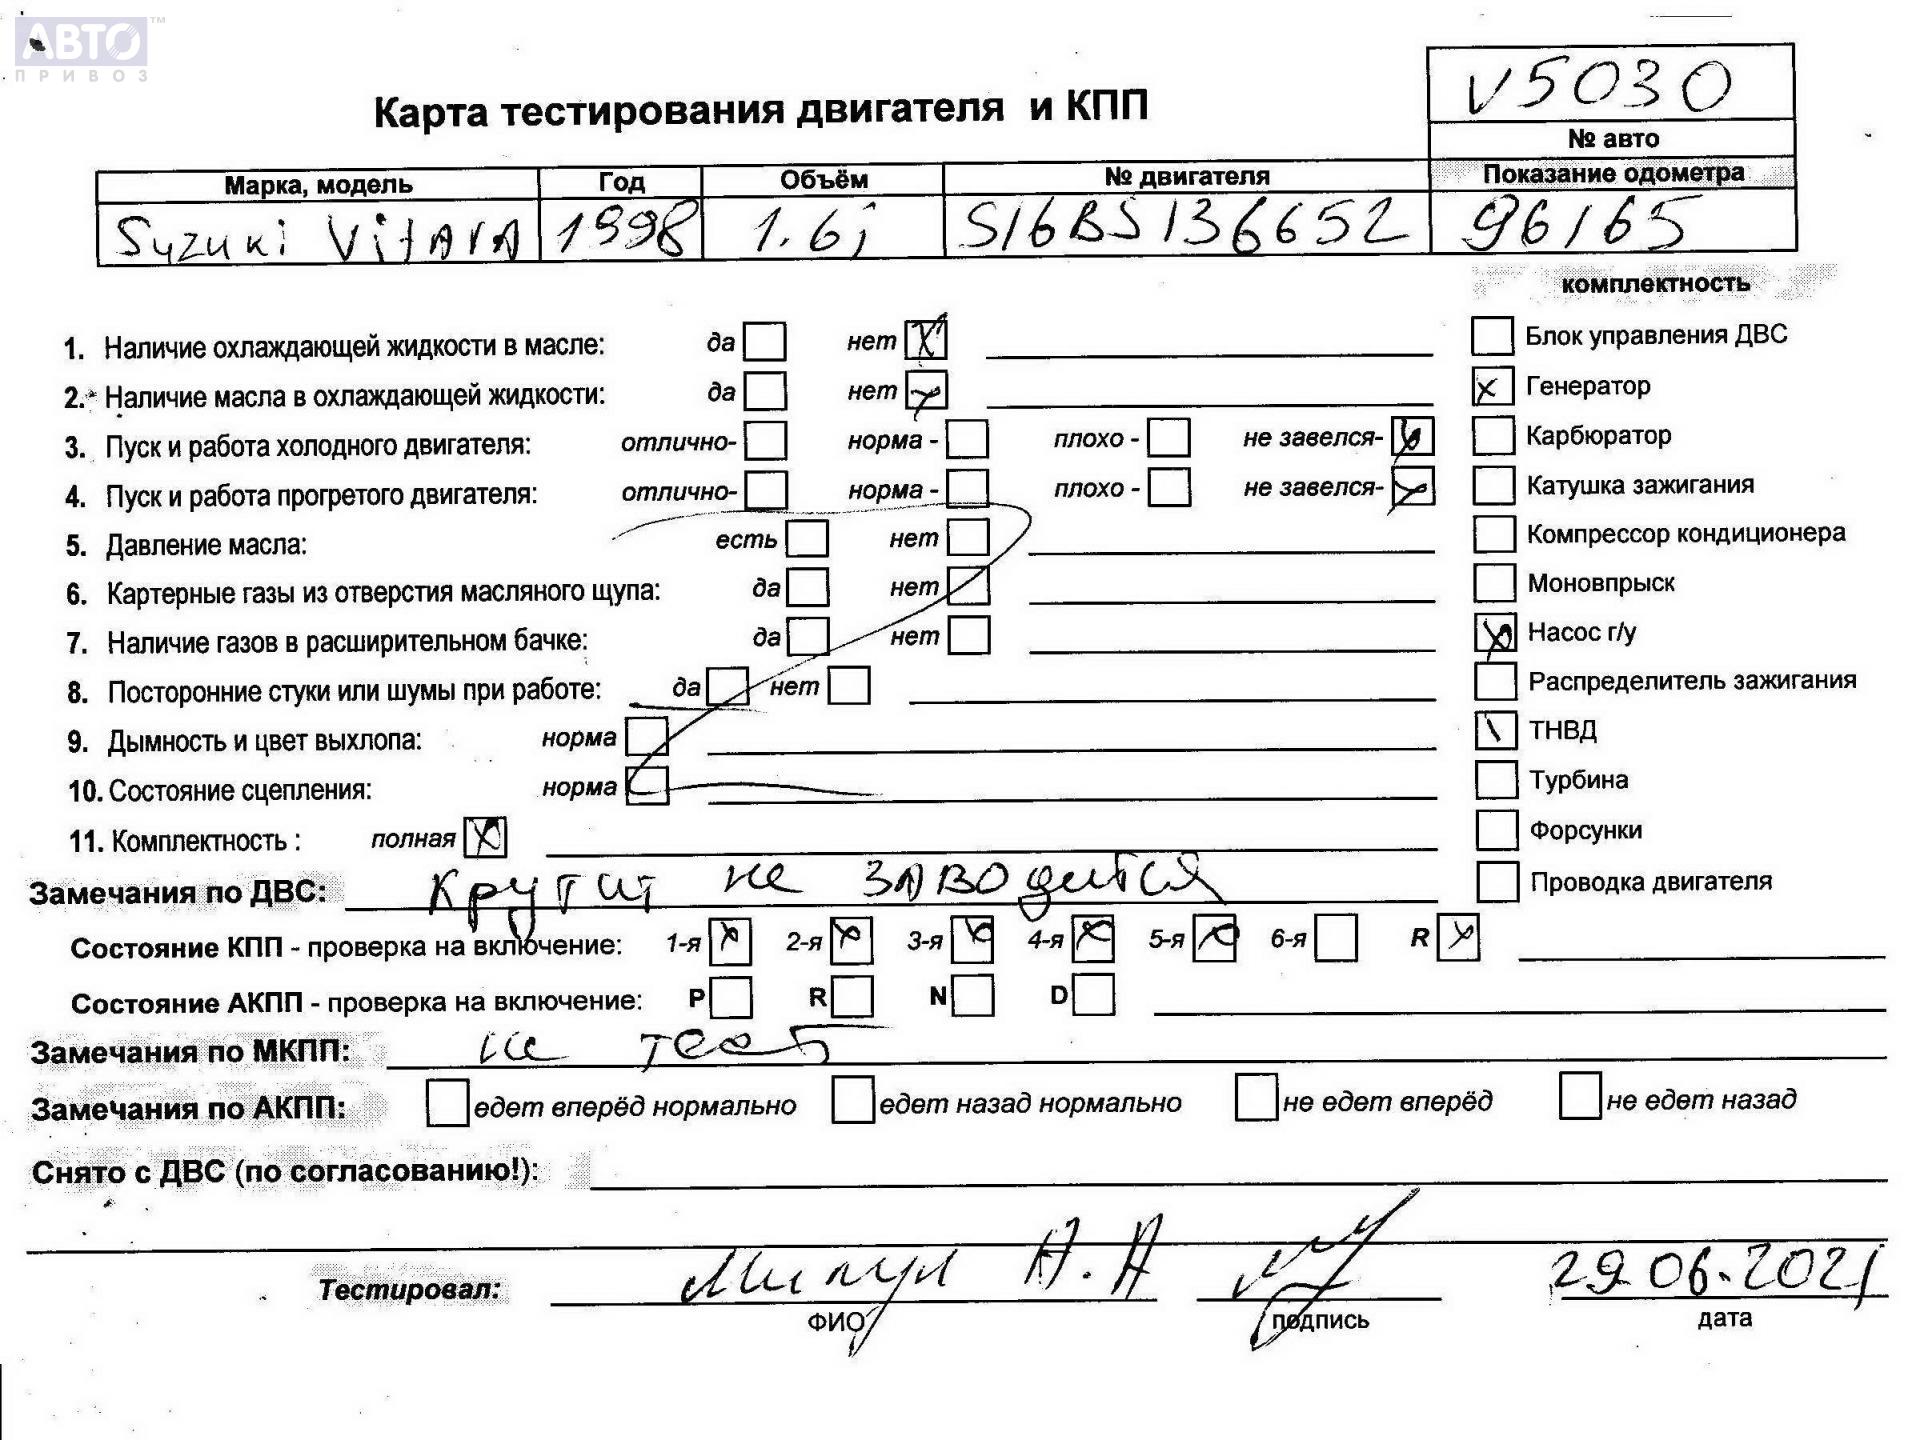 АВТО™
ПРИВОЗ
V5030
Карта тестирования двигателя и КПП
№ авто
Марка, модель Год Объём № двигателя Показание одометра
Suzuki VitARA 1998 1.6i S16BS136652 96165
комплектность
1. Наличие охлаждающей жидкости в масле: да нет Блок управления ДВС
2. Наличие масла в охлаждающей жидкости: да нет Генератор
3. Пуск и работа холодного двигателя: отлично- норма - плохо - не завелся- Карбюратор
4. Пуск и работа прогретого двигателя: отлично- норма - плохо - не завелся- Катушка зажигания
5. Давление масла: есть нет Компрессор кондиционера
6. Картерные газы из отверстия масляного щупа: да нет Моновпрыск
7. Наличие газов в расширительном бачке: да нет Насос г/у
8. Посторонние стуки или шумы при работе: да нет Распределитель зажигания
9. Дымность и цвет выхлопа: норма ТНВД
10. Состояние сцепления: норма Турбина
11. Комплектность : полная Форсунки
Замечания по ДВС: Крутит не заводится Проводка двигателя
Состояние КПП - проверка на включение: 1-я 2-я 3-я 4-я 5-я 6-я R
Состояние АКПП - проверка на включение: P R N D
Замечания по МКПП: не тест
Замечания по АКПП: едет вперёд нормально едет назад нормально не едет вперёд не едет назад
Снято с ДВС (по согласованию!):
Тестировал: А.А 29.06.2021
ФИО подпись дата